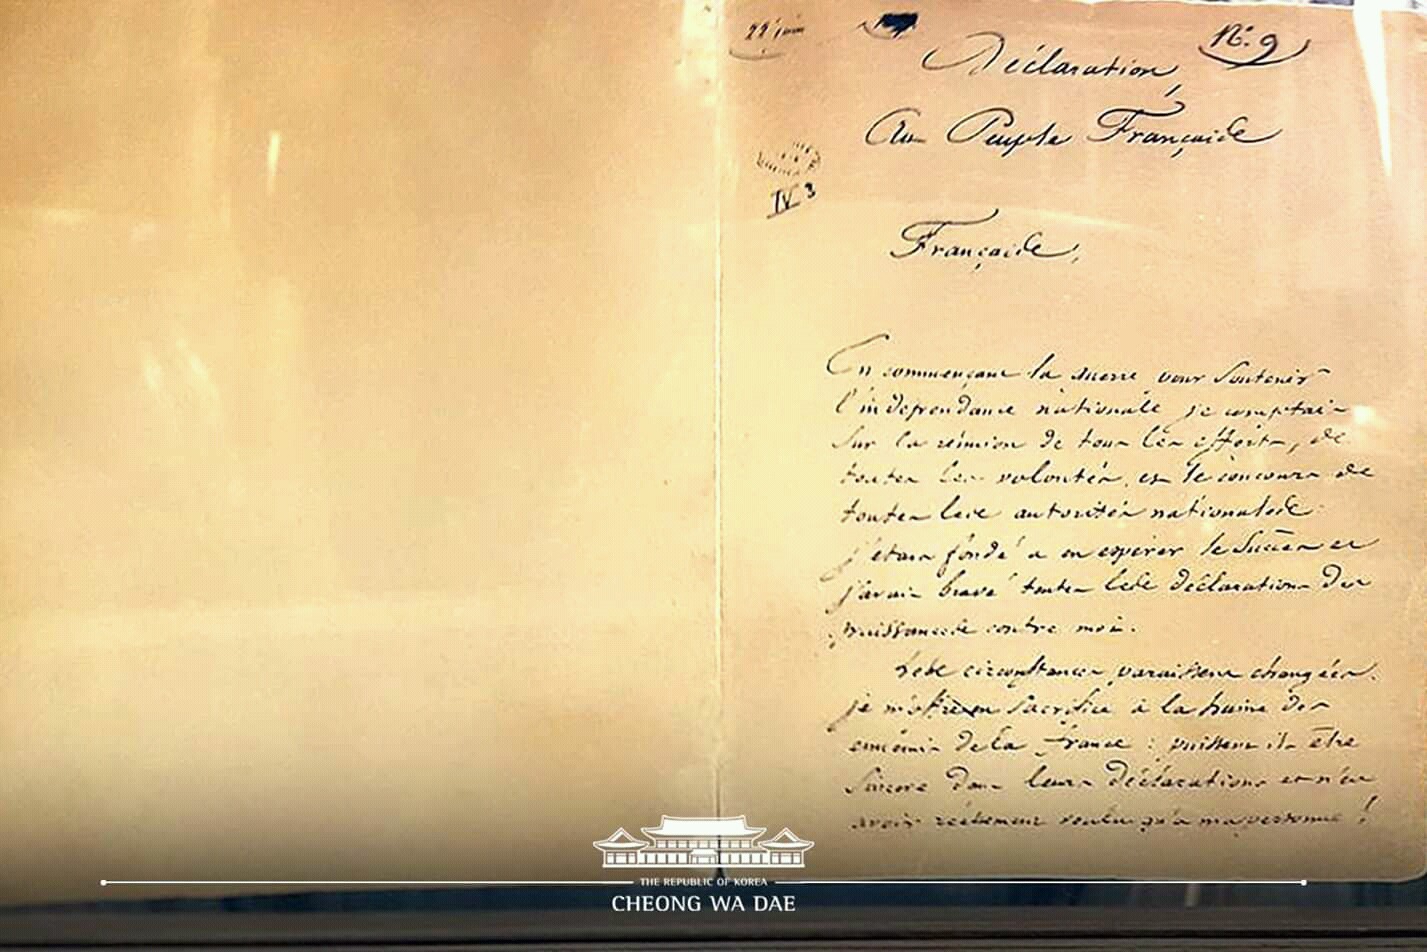 22 juin
N.° 9
Déclaration,
Au Peuple Français
IV 3
Français,
En commençant la guerre pour soutenir
l'indépendance nationale je comptais
sur la réunion de tous les efforts, de
toutes les volontés, et le concours de
toutes les autorités nationales
j'étais fondé à en espérer le succès et
j'avais bravé toutes les déclarations des
puissances contre moi.
Les circonstances paraissent changées.
je m'offre en sacrifice à la haine des
ennemis de la france : puissent ils être
sincère dans leurs déclarations et n'en
avoir réellement voulu qu'à ma personne !
THE REPUBLIC OF KOREA
CHEONG WA DAE